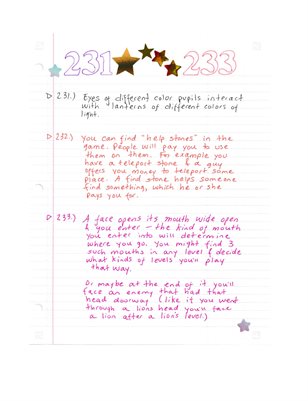 231 233
231.) Eyes of different color pupils interact
with lanterns of different colors of
light.
232.) You can find "help stones" in the
game. People will pay you to use
them on them. For example you
have a teleport stone & a guy
offers you money to teleport some
place. A find stone helps someone
find something, which he or she
pays you for.
233.) A face opens its mouth wide open
& you enter - the kind of mouth
you enter into will determine
where you go. You might find 3
such mouths in any level & decide
what kinds of levels you'll play
that way.
Or maybe at the end of it you'll
face an enemy that had that
head doorway (like if you went
through a lions head you'll face
a lion after a lion's level.)